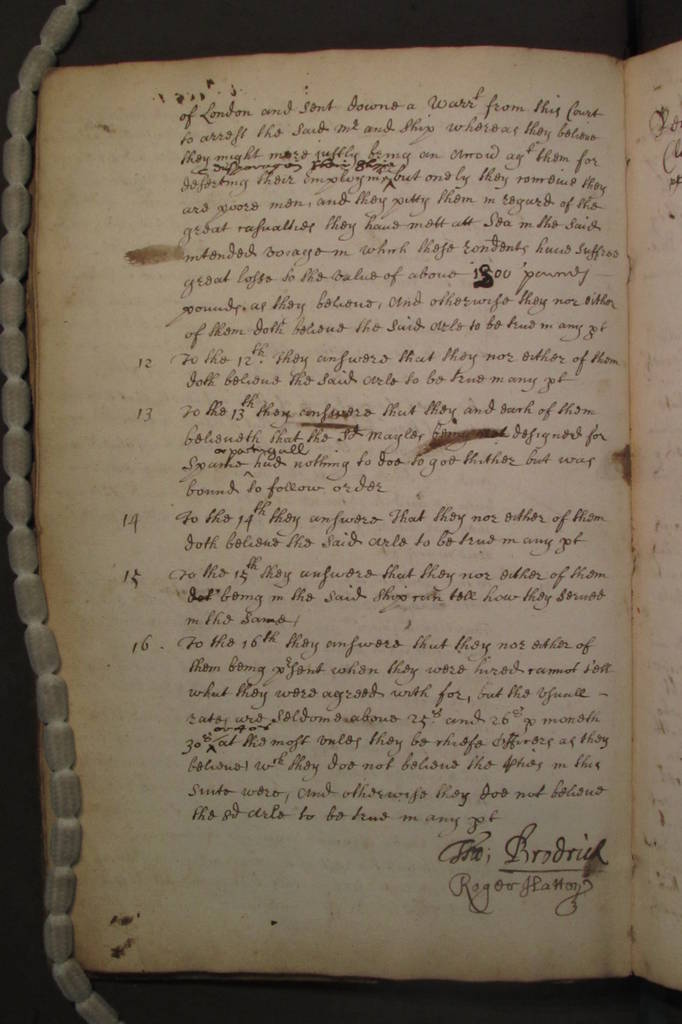 of London and sent downe a Warrt from this Court
to arrest the said mr and ship whereas they beleive
they might more justly bring an accon agt them for
deserting their imploymt but onely they conceive they
are poore men, and they pitty them in regard of the
great casualties they have mett att Sea in the said
intended voiage in which these rendents have suffred
great losse to the value of above 1300 pounds
pounds, as they beleive, and otherwise they nor either
of them doth beleive the said arle to be true in any pt
12 To the 12th they answere that they nor either of them
doth beleive the said arle to be true in any pt
13 To the 13th they answere that they and each of them
beleiveth that the sd Mayles being not designed for
or portugall
Spaine had nothing to doe to goe thither but was
bound to follow order
14 To the 14th they answere That they nor either of them
doth beleive the said arle to be true in any pt
15 To the 15th they answere that they nor either of them
being in the said ship can tell how they served
in the same,
16. To the 16th they answere that they nor either of
them being prsent when they were hired cannot tell
what they were agreed with for, but the usuall
rates are seldome above 25s and 26s p moneth
or 40s
30s at the most unles they be cheife officers as they
beleive, wch they doe not beleive the pties in this
suite were, and otherwise they doe not beleive
the sd arle to be true in any pt
Tho: Brodrick
Roger Hatton